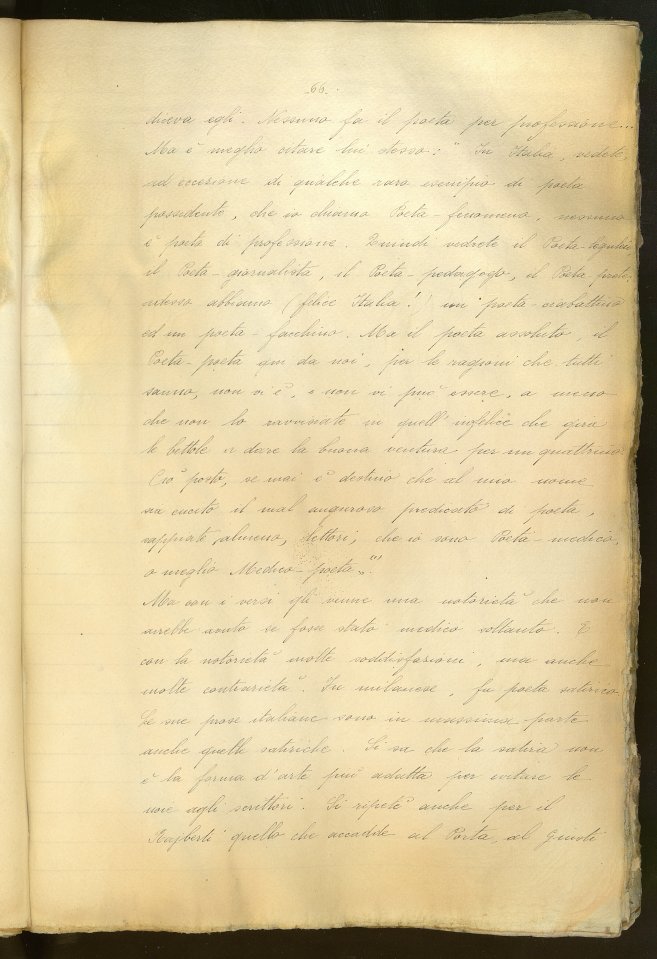 -66-
diceva egli. Nessuno fa il poeta per professione...
Ma è meglio citare lui stesso: "In Italia, vedete,
ad eccezione di qualche raro esempio di poeta
possidente, che io chiamo Poeta-fenomeno, nessuno
è poeta di professione. Quindi vedrete il Poeta-
il Poeta-giornalista, il Poeta-pedagogo, il Poeta-prete
adesso abbiamo (felice Italia!) un poeta-ciabattino
ed un poeta-facchino. Ma il poeta assoluto, il
Poeta-poeta qui da noi, per le ragioni che tutti
sanno, non vi è, e non vi può essere, a meno
che non lo ravvisiate in quell'infelice che gira
le bettole a dare la buona ventura per un quattrino.
Ciò posto, se mai è destino che al mio nome
sia cucito il mal auguroso predicato di poeta,
sappiate almeno, lettori, che io sono Poeta-medico,
o meglio Medico-poeta„(1).
Ma con i versi gli venne una notorietà che non
avrebbe avuto se fosse stato medico soltanto. E
con la notorietà molte soddisfazioni, ma anche
molte contrarietà. In milanese, fu poeta satirico.
Le sue prose italiane sono in massima parte
anche quelle satiriche. Si sa che la satira non
è la forma d'arte più adatta per evitare le
noie agli scrittori. Si ripetè anche per il
Rajberti quello che accadde al Porta, al Giusti